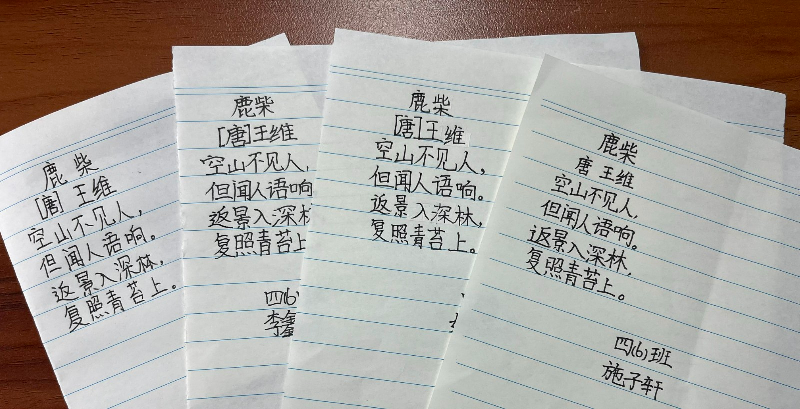 鹿柴
[唐] 王维
空山不见人，
但闻人语响。
返景入深林，
复照青苔上。
鹿柴
[唐]王维
空山不见人，
但闻人语响
返景入深林
复照青苔上。
四(6)
李
鹿柴
[唐]王维
空山不见人，
但闻人语响。
返景入深林，
复照青苔上。
鹿柴
唐 王维
空山不见人，
但闻人语响。
返景入深林，
复照青苔上。
四(6)班
施子轩